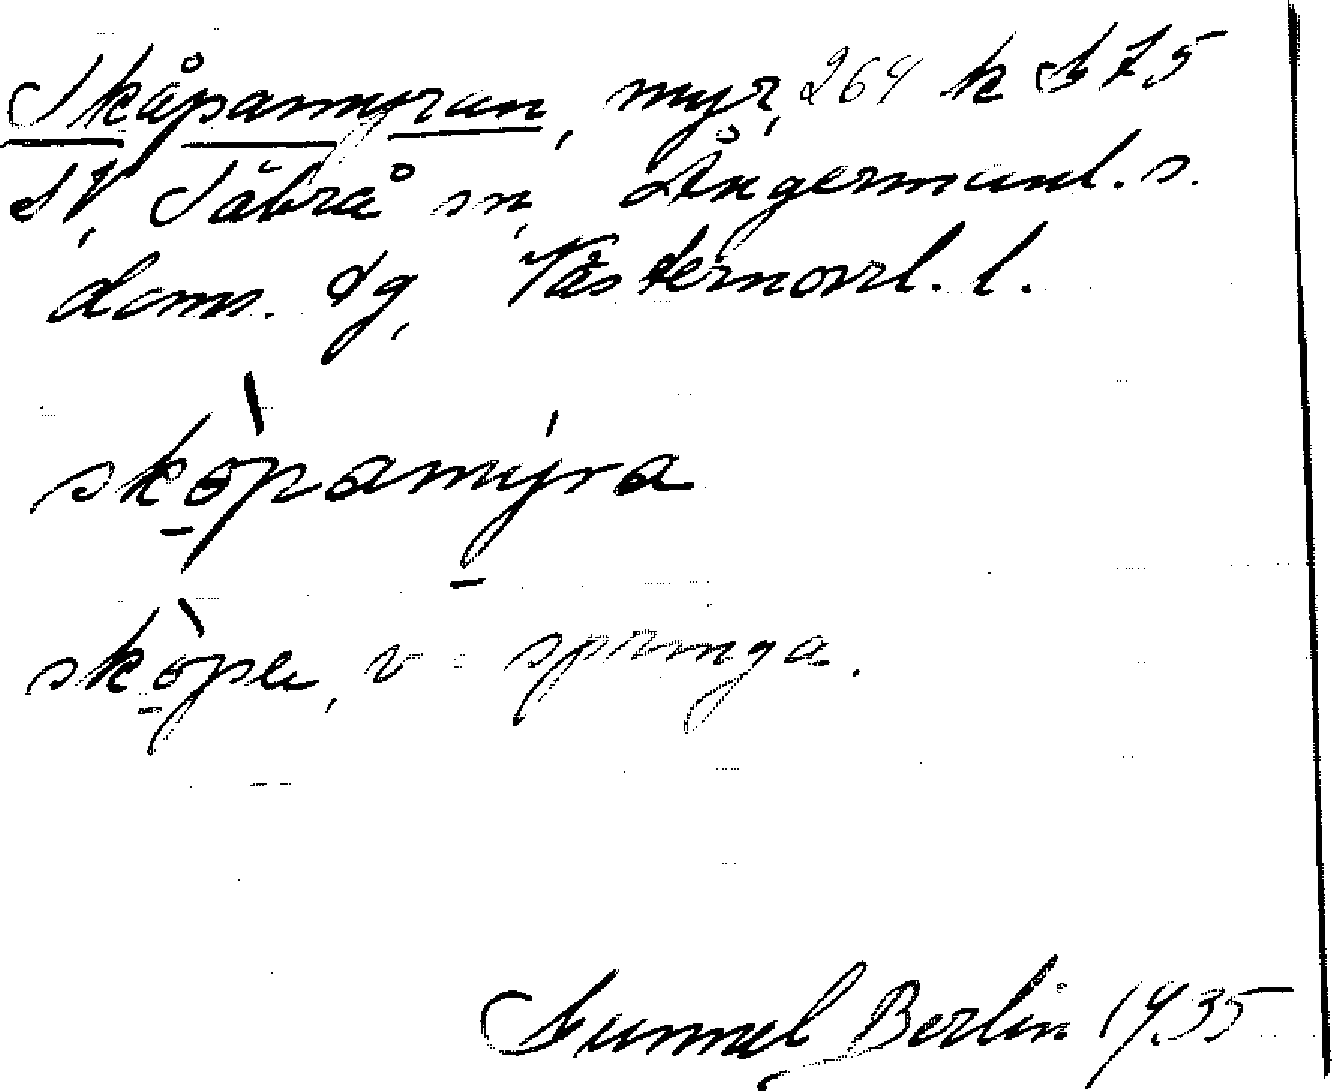 Skåpamyran, myr, 264 k S 75
SV, Säbrå sn, Ångermanl. s.
doms. dg, Västernorrl. l.
skòpamýra
skòpa, v = springa.
Gunnel Berlin 1935